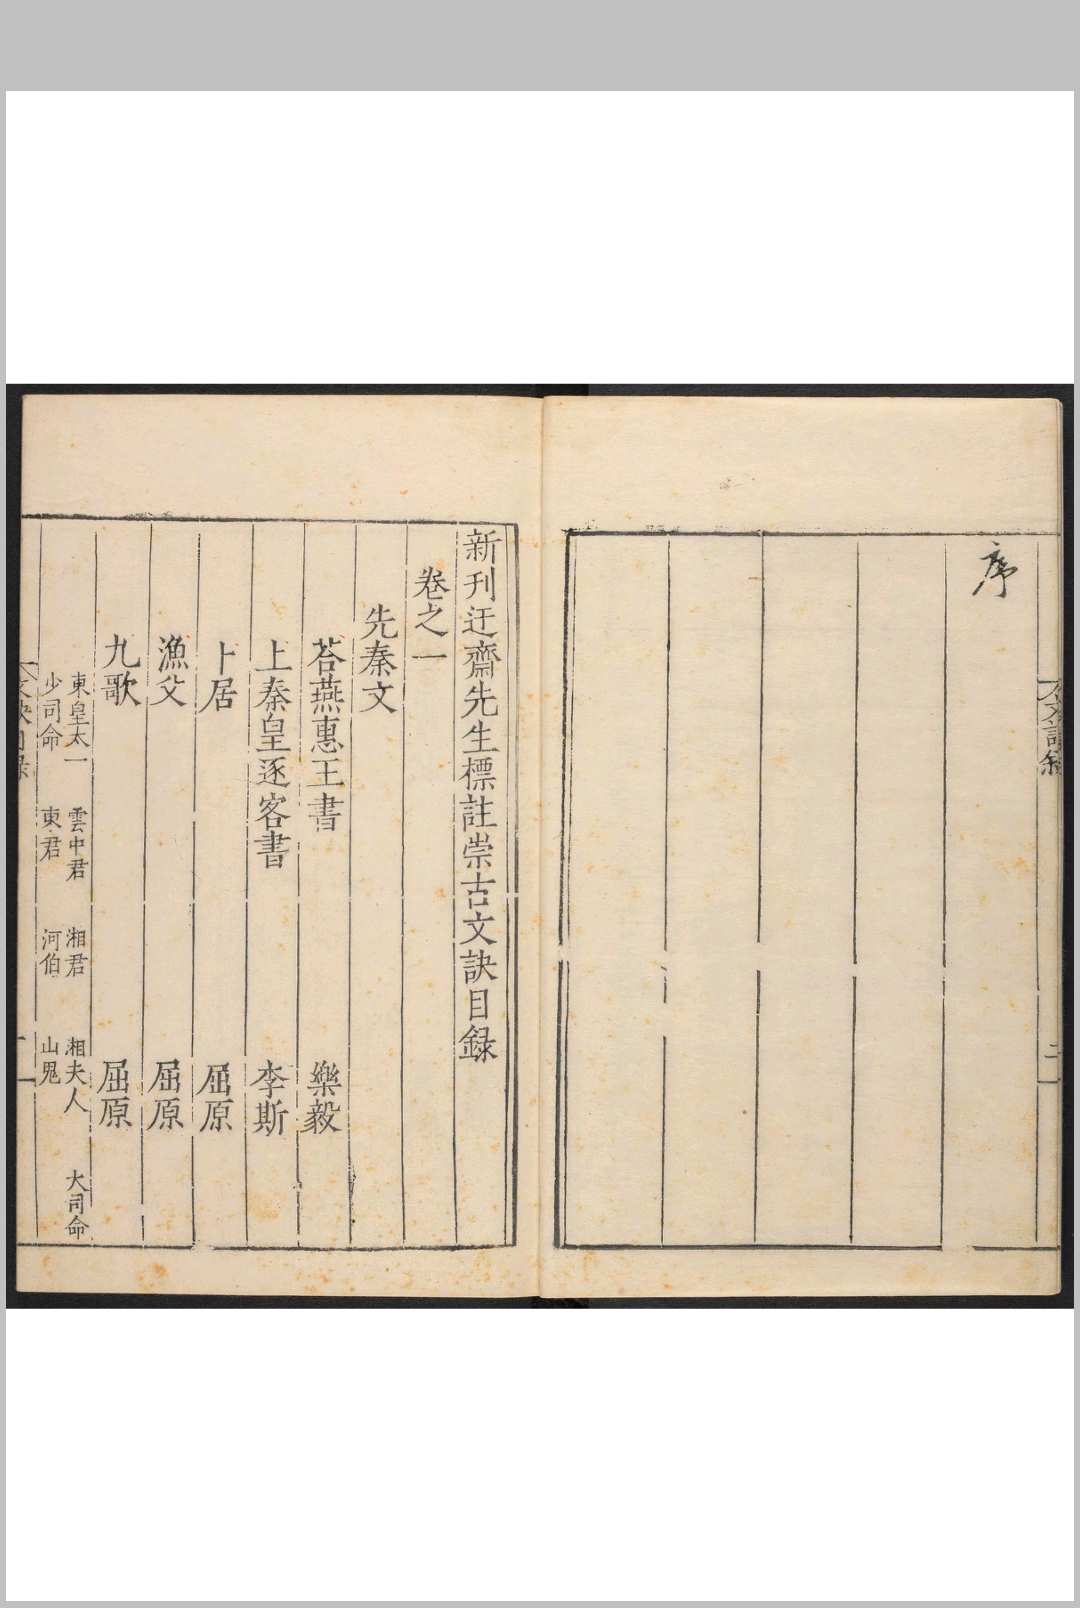 序
新刊迂齋先生標註崇古文訣目錄
卷之一
先秦文
荅燕惠王書 樂毅
上秦皇逐客書 李斯
卜居 屈原
漁父 屈原
九歌 屈原
東皇太一 雲中君 湘君 湘夫人 大司命
少司命 東君 河伯 山鬼